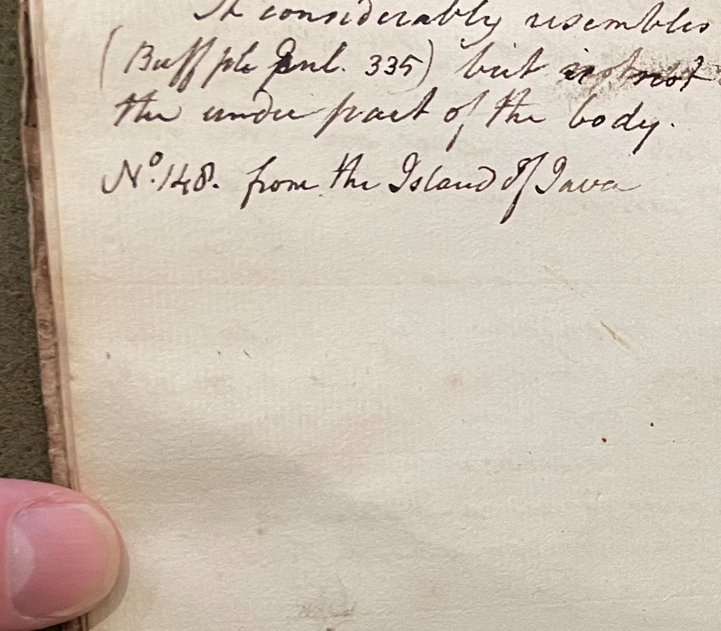 It considerably resembles
(Buff ple Enl. 335) but not
the under part of the body.
No. 148. from the Island of Java